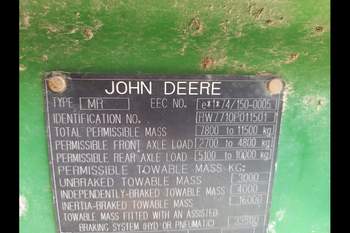 JOHN DEERE
TYPE MR EEC NO. e*1*74/150-0005
IDENTIFICATION NO. RW7710P011501
TOTAL PERMISSIBLE MASS 7800 to 11500 kg
PERMISSIBLE FRONT AXLE LOAD 2700 to 4800 kg
PERMISSIBLE REAR AXLE LOAD 5100 to 10000 kg
PERMISSIBLE TOWABLE MASS KG:
UNBRAKED TOWABLE MASS 3000
INDEPENDENTLY-BRAKED TOWABLE MASS 4000
INERTIA-BRAKED TOWABLE MASS 16000
TOWABLE MASS FITTED WITH AN ASSISTED
BRAKING SYSTEM (HYD OR PNEUMATIC)